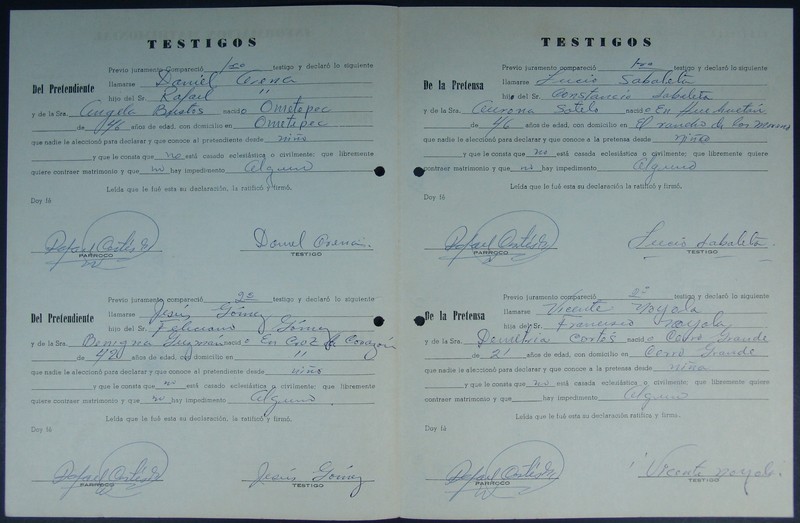 TESTIGOS
Previo juramento compareció 1ro testigo y declaró lo siguiente
Del Pretendiente
llamarse Daniel
hijo del Sr. Rafael "
y de la Sra. Angela Bustos nacido Ometepec
de 46 años de edad, con domicilio en Ometepec
que nadie le aleccionó para declarar y que conoce al pretendiente desde niño
y que le consta que no está casado eclesiástica o civilmente; que libremente
quiere contraer matrimonio y que no hay impedimento Alguno
Leída que le fué esta su declaración, la ratificó y firmó.
Doy fé
Rafael Cortés
PARROCO
Daniel
TESTIGO
Previo juramento compareció 2o testigo y declaró lo siguiente
Del Pretendiente
llamarse Jesús Gómez
hijo del Sr. Feliciano Gómez
y de la Sra. Benigna Guzmán nacido En Cruz de Corazón
de 42 años de edad, con domicilio en "
que nadie le aleccionó para declarar y que conoce al pretendiente desde niño
y que le consta que no está casado eclesiástica o civilmente; que libremente
quiere contraer matrimonio y que no hay impedimento Alguno
Leída que le fué esta su declaración, la ratificó y firmó.
Doy fé
Rafael Cortés
PARROCO
Jesús Gómez
TESTIGO
TESTIGOS
Previo juramento compareció 1ro testigo y declaró lo siguiente
De la Pretensa
llamarse Lucio Sabaleta
hijo del Sr. Constancio Sabaleta
y de la Sra. Aurora Sotelo nacido En
de 46 años de edad, con domicilio en El rancho de los
que nadie le aleccionó para declarar y que conoce a la pretensa desde niña
y que le consta que no está casada eclesiástica o civilmente; que libremente quiere
contraer matrimonio y que no hay impedimento Alguno
Leída que le fué esta su declaración la ratificó y firmó.
Doy fé
Rafael Cortés
PARROCO
Lucio Sabaleta
TESTIGO
Previo juramento compareció 2o testigo y declaró lo siguiente
De la Pretensa
llamarse Vicente Noyola
hijo del Sr. Francisco Noyola
y de la Sra. Demetria Cortés nacido Cerro Grande
de 21 años de edad, con domicilio en Cerro Grande
que nadie le aleccionó para declarar y que conoce a la pretensa desde niña
y que le consta que no está casada eclesiástica o civilmente; que libremente quiere
contraer matrimonio y que hay impedimento Alguno
Leída que le fué esta su declaración ratifica y firmo.
Doy fé
Rafael Cortés
PARROCO
Vicente Noyola
TESTIGO